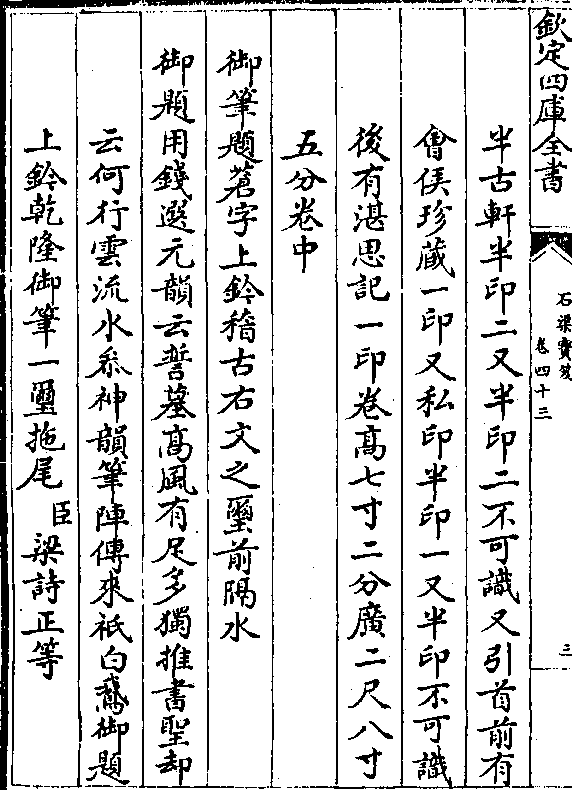 欽定四庫全書
石渠寶笈
卷四十三
三
半古軒半印二又半印二不可識又引首前有
會侯珍藏一印又私印半印一又半印不可識
後有湛思記一印卷高七寸二分廣二尺八寸
五分卷中
御筆題蒼字上鈐稽古右文之璽前隔水
御題用錢選元韻云誓墓高風有足多獨推書聖却
云何行雲流水叅神韻筆陣傳來祇白鵞御題
上鈐乾隆御筆一璽拖尾臣梁詩正等